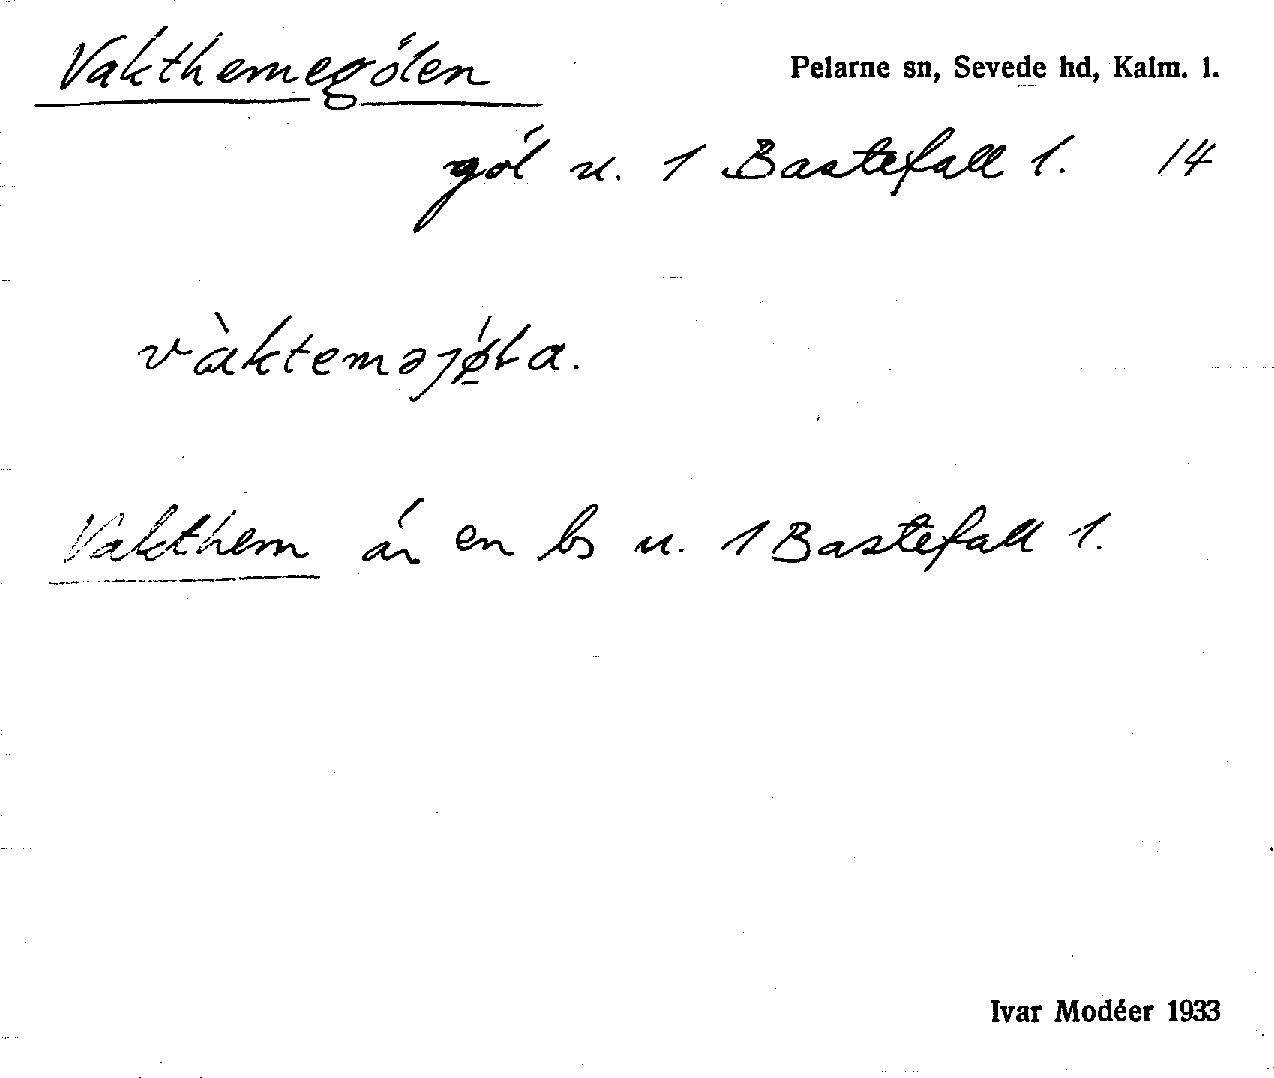 Vakthemegölen
Pelarne sn, Sevede hd, Kalm. l.
göl u. 1 Bastefall 1. 14
vàktemǝjø̀la.
Vakthem är en bs u. 1 Bastefall 1.
Ivar Modéer 1933